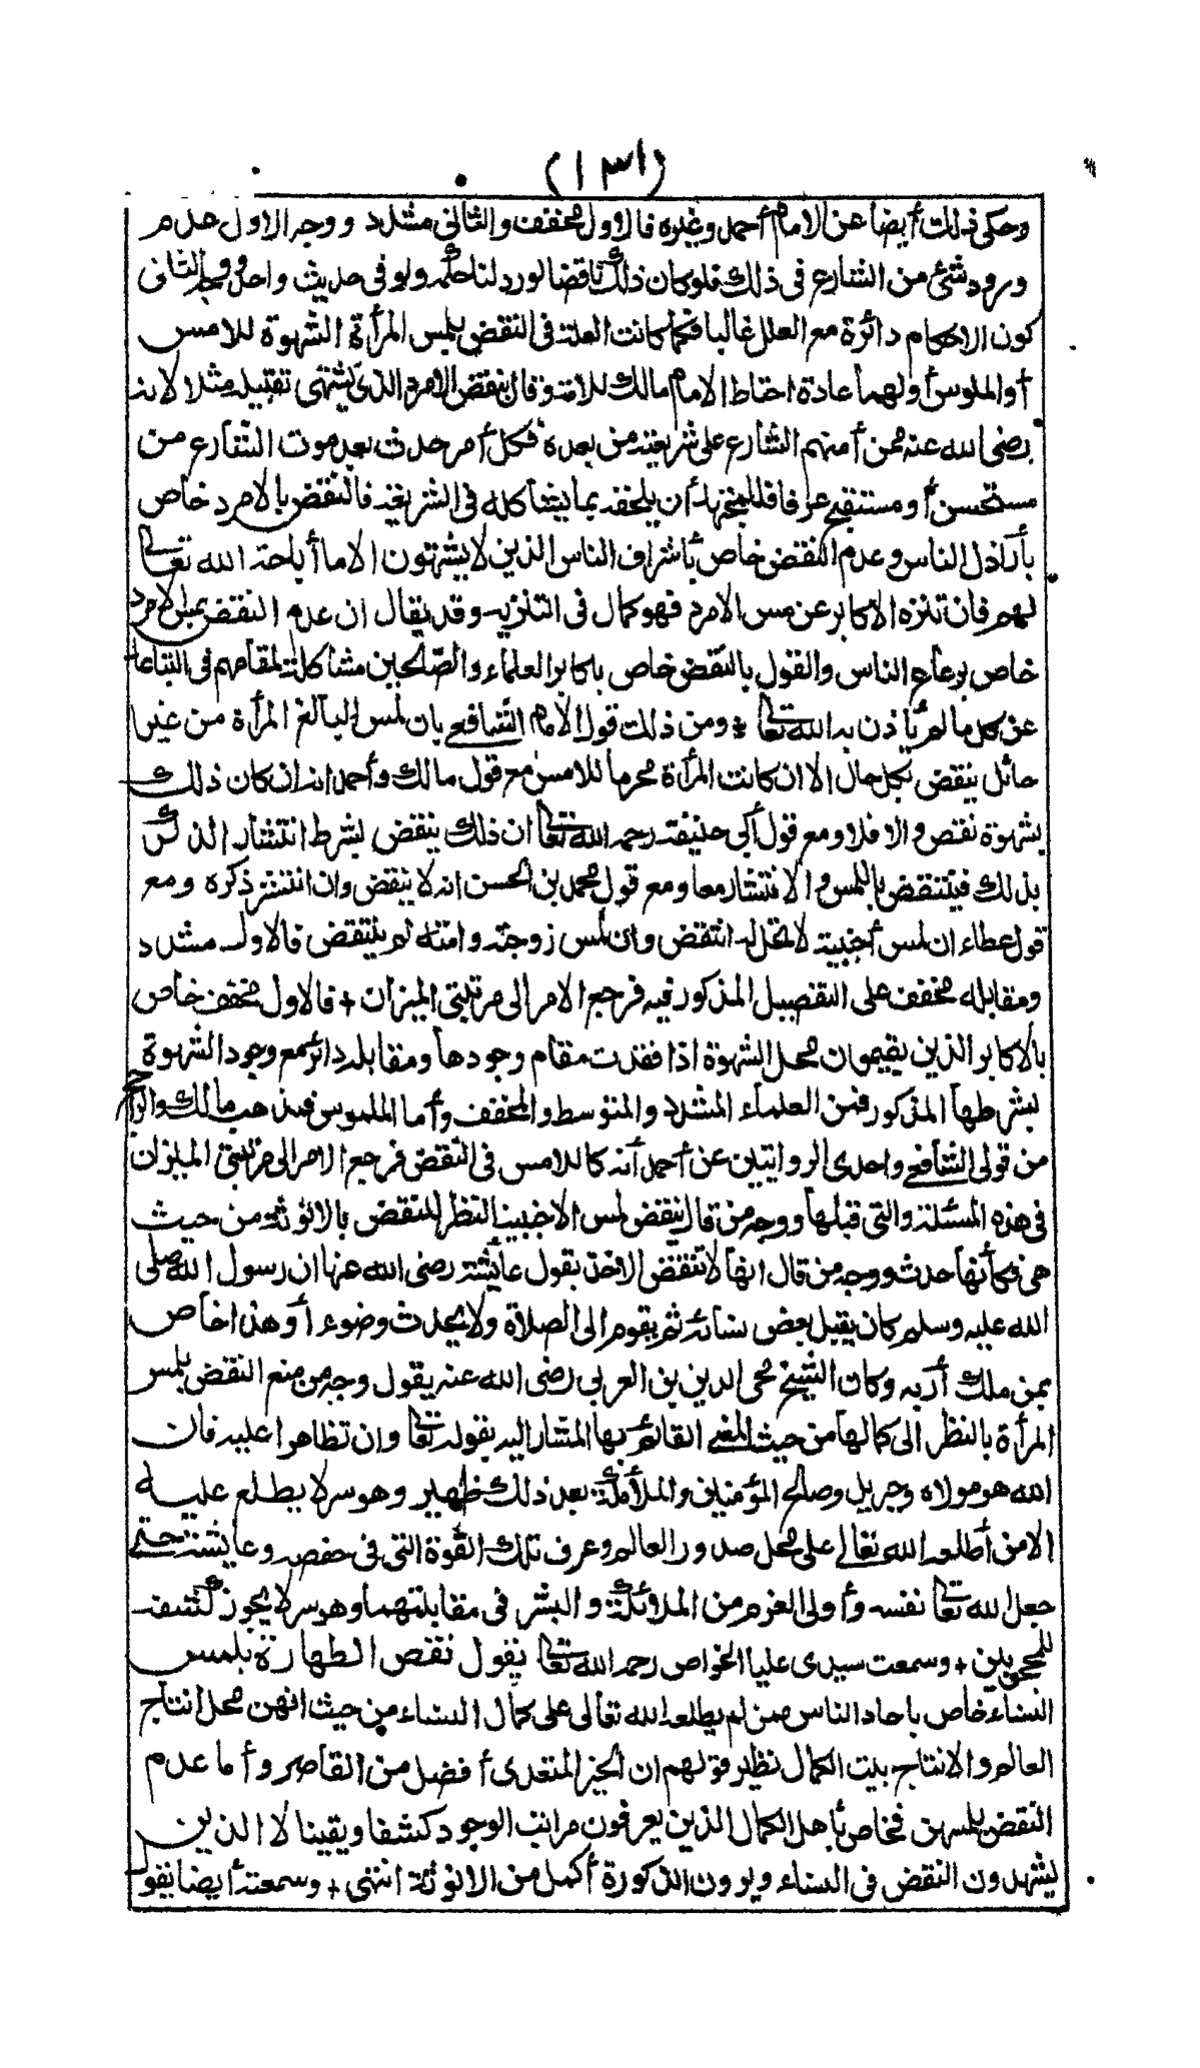 (١٣١)
وحكى ذلك أيضا عن الامام أحمد وغيره فالاول مخفف والثانى مشدد ووجه الاول عدم
ورود شئ من الشارع فى ذلك فلو كان ذلك ناقضا لورد لنا حكمه ولو فى حديث واحد ووجه الثانى
كون الاحكام دائرة مع العلل غالبا فكما كانت العلة فى النقض بلمس المرأة الشهوة للامس
أو الملموس أولهما عادة احتاط الامام مالك للامة وقال ينقض الامرد الذى يشتهى تقبيله مثلا لانه
رضى الله عنه ممن أمنهم الشارع على شريعته من بعده فكل أمر حدث بعد موت الشارع من
مستحسن أو مستقبح عرفا فللمجتهد أن يلحقه بما يشاكله فى الشريعة فالنقض بالامرد خاص
بأراذل الناس وعدم النقض خاص بأشراف الناس الذين لا يشتهون الا ما أباحه الله تعالى
لهم فان تنزه الاكابر عن مس الامرد فهو كمال فى التنزيه وقد يقال ان عدم النقض بمس الامرد
خاص برعاع الناس والقول بالنقض خاص بأكابر العلماء والصالحين مشاكلة لمقامهم فى التباعد
عن كل ما لم يأذن به الله تعالى + ومن ذلك قول الامام الشافعى بان لمس البالغ المرأة من غير
حائل ينقض بكل حال الا ان كانت المرأة محرما للامس مع قول مالك وأحمد انه ان كان ذلك
بشهوة نقض والا فلا ومع قول أبى حنيفة رحمه الله تعالى ان ذلك ينقض بشرط انتشار الذكر
بذلك فينتقض باللمس والانتشار معا ومع قول محمد بن الحسن انه لا ينقض وان انتشر ذكره ومع
قول عطاء ان لمس أجنبية لا تحل له انتقض وان لمس زوجته وامته لم ينتقض فالاول مشدد
ومقابله مخفف على التفصيل المذكور فيه فرجع الامر الى مرتبتى الميزان + فالاول مخفف خاص
بالاكابر الذين يقيمون محل الشهوة اذا فقدت مقام وجودها ومقابله دائر مع وجود الشهوة
بشرطها المذكور فمن العلماء المشدد والمتوسط والمخفف وأما الملموس فمذهب مالك والراجح
من قولى الشافعى واحدى الروايتين عن أحمد أنه كاللامس فى النقض فرجع الامر الى مرتبتى الميزان
فى هذه المسئلة والتى قبلها ووجه من قال ينقض لمس الاجنبية النظر للنقض بالانوثة من حيث
هى فكأنها حدث ووجه من قال انها لا تنقض الاخذ بقول عائشة رضى الله عنها ان رسول الله صلى
الله عليه وسلم كان يقبل بعض نسائه ثم يقوم الى الصلاة ولا يحدث وضوءا وهذا خاص
بمن ملك أربه وكان الشيخ محى الدين بن العربى رضى الله عنه يقول وجه من منع النقض بلمس
المرأة بالنظر الى كمالها من حيث المعنى القائم بها المشار اليه بقوله تعالى وان تظاهرا عليه فان
الله هو مولاه وجبريل وصالح المؤمنين والملائكة بعد ذلك ظهير وهو سر لا يطلع عليه
الا من أطلعه الله تعالى على محل صدور العالم وعرف تلك القوة التى فى حفصة وعائشة حتى
جعل الله تعالى نفسه وأولى العزم من الملائكة والبشر فى مقابلتهما وهو سر لا يجوز كشفه
للمحجوبين + وسمعت سيدى عليا الخواص رحمه الله تعالى يقول نقض الطهارة بلمس
النساء خاص بآحاد الناس ممن لم يطلعه الله تعالى على كمال النساء من حيث انهن محل انتاج
العالم والانتاج بيت الكمال نظير قولهم ان الخير المتعدى أفضل من القاصر وأما عدم
النقض بلمسهن فخاص بأهل الكمال الذين يعرفون مراتب الوجود كشفا ويقينا لا الذين
يشهدون النقض فى النساء ويرون الذكورة أكمل من الانوثة انتهى + وسمعته أيضا يقول